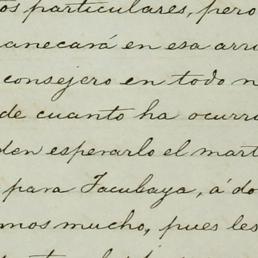 tos particulares, pero
anecará en esa arri
consejero en todo n
de cuanto ha ocurri
den esperarlo el mart
para Tacubaya, á do
mos mucho, pues les